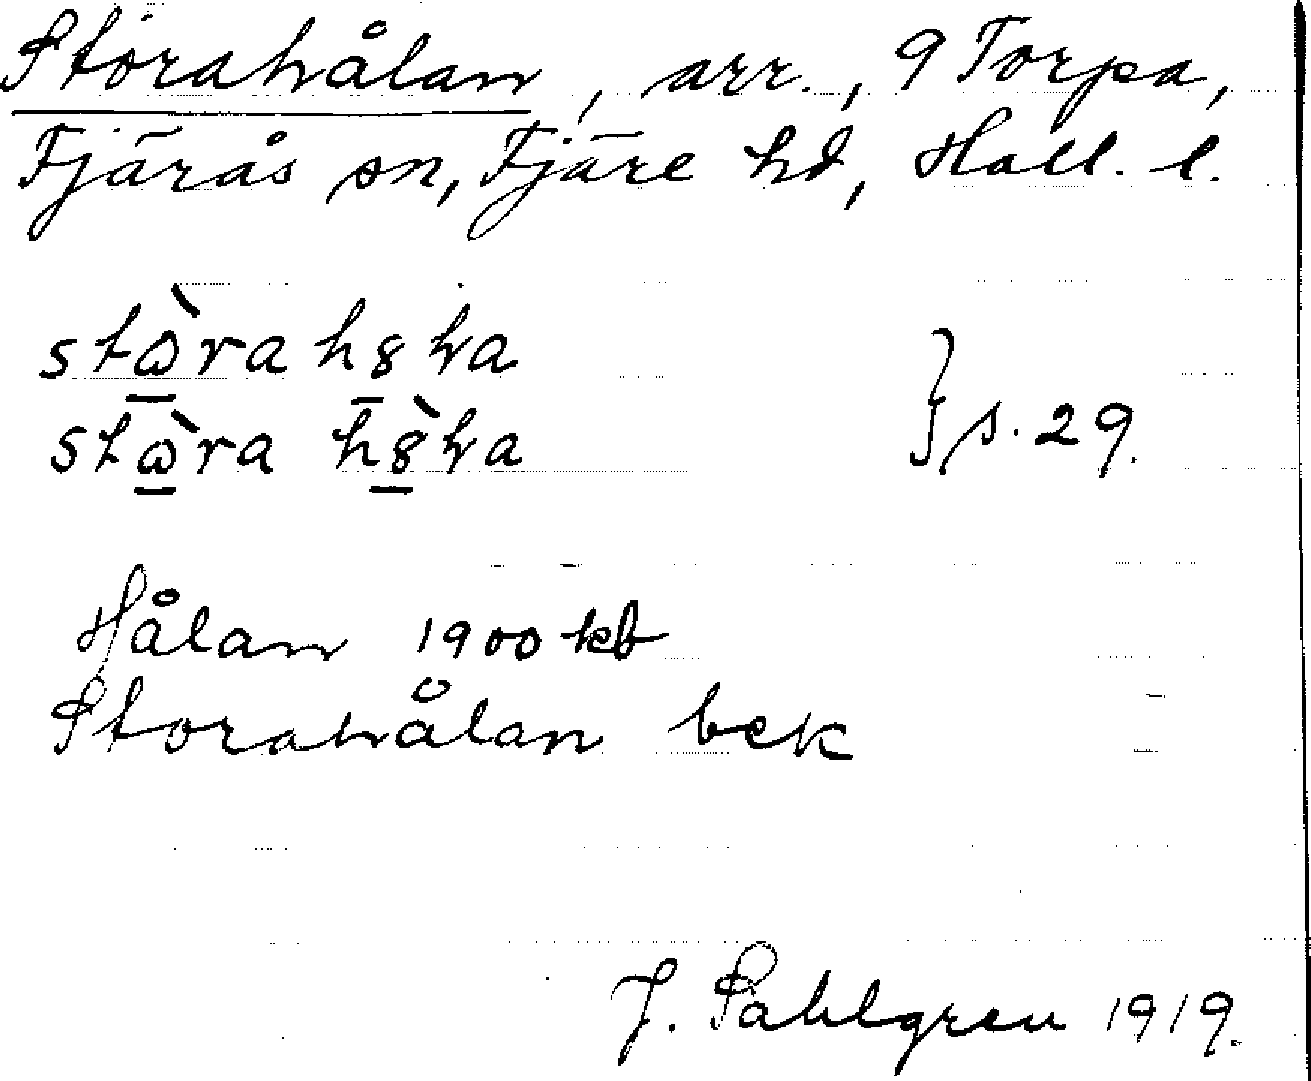 Storahålan, arr., 9 Torpa,
Fjärås sn, Fjäre hd, Hall. l.
s. 29.
Hålan 1900 kb
Storahålan bek
J. Sahlgren 1919.